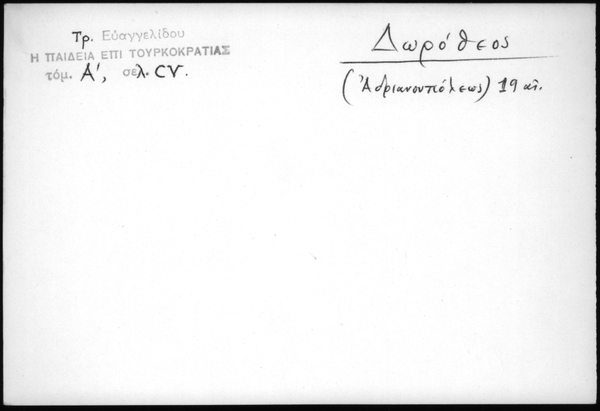 Τρ. Εὐαγγελίδου
Η ΠΑΙΔΕΙΑ ΕΠΙ ΤΟΥΡΚΟΚΡΑΤΙΑΣ
τόμ. Α', σελ. CV.
Δωρόθεος
(Ἀδριανουπόλεως) 19 αἰ.